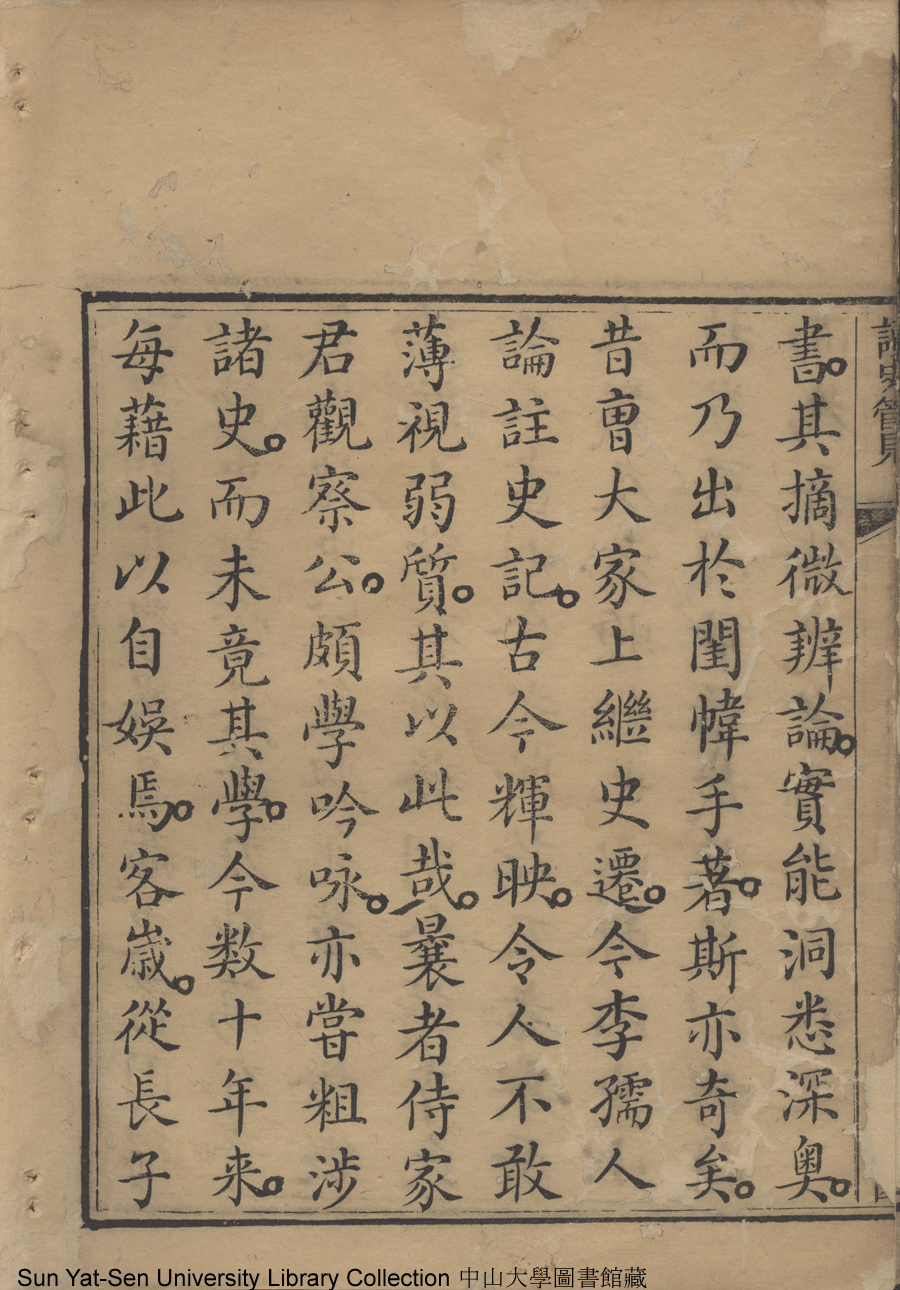 讀史管見
書。其摘微辨論。實能洞悉深奧。
而乃出於閨幃手著。斯亦奇矣。
昔曺大家上繼史遷。今李孺人
論註史記。古今輝映。令人不敢
薄視弱質。其以此哉。曩者侍家
君觀察公。頗學吟咏。亦嘗粗涉
諸史。而未竟其學。今数十年来。
每藉此以自娛焉。客歲。從長子
Sun Yat-Sen University Library Collection 中山大學圖書館藏